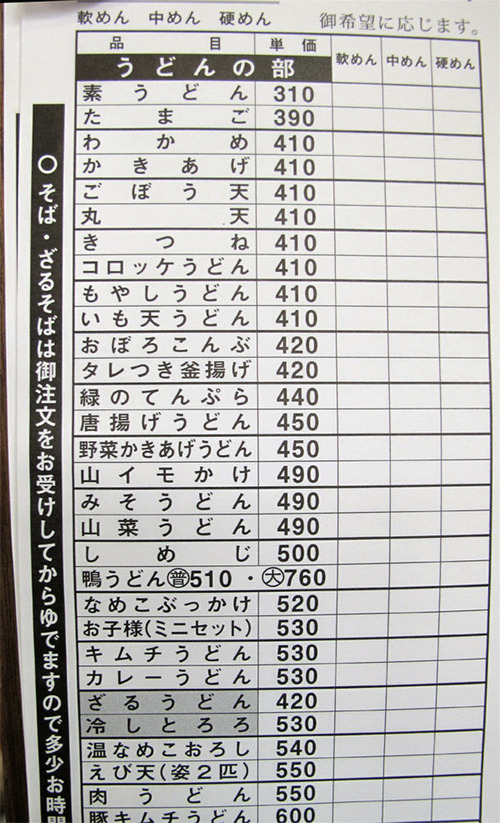 軟めん 中めん 硬めん 御希望に応じます。
品目 単価 軟めん 中めん 硬めん
うどんの部
素うどん 310
たまご 390
わかめ 410
かきあげ 410
ごぼう天 410
丸天 410
きつね 410
コロッケうどん 410
もやしうどん 410
いも天うどん 410
おぼろこんぶ 420
タレつき釜揚げ 420
緑のてんぷら 440
唐揚げうどん 450
野菜かきあげうどん 450
山イモかけ 490
みそうどん 490
山菜うどん 490
しめじ 500
鴨うどん㊪510・㊛760
なめこぶっかけ 520
お子様(ミニセット) 530
キムチうどん 530
カレーうどん 530
ざるうどん 420
冷しとろろ 530
温なめこおろし 540
えび天(姿2匹) 550
肉うどん 550
豚キムチうどん 600
○そば・ざるそばは御注文をお受けしてからゆでますので多少お時間